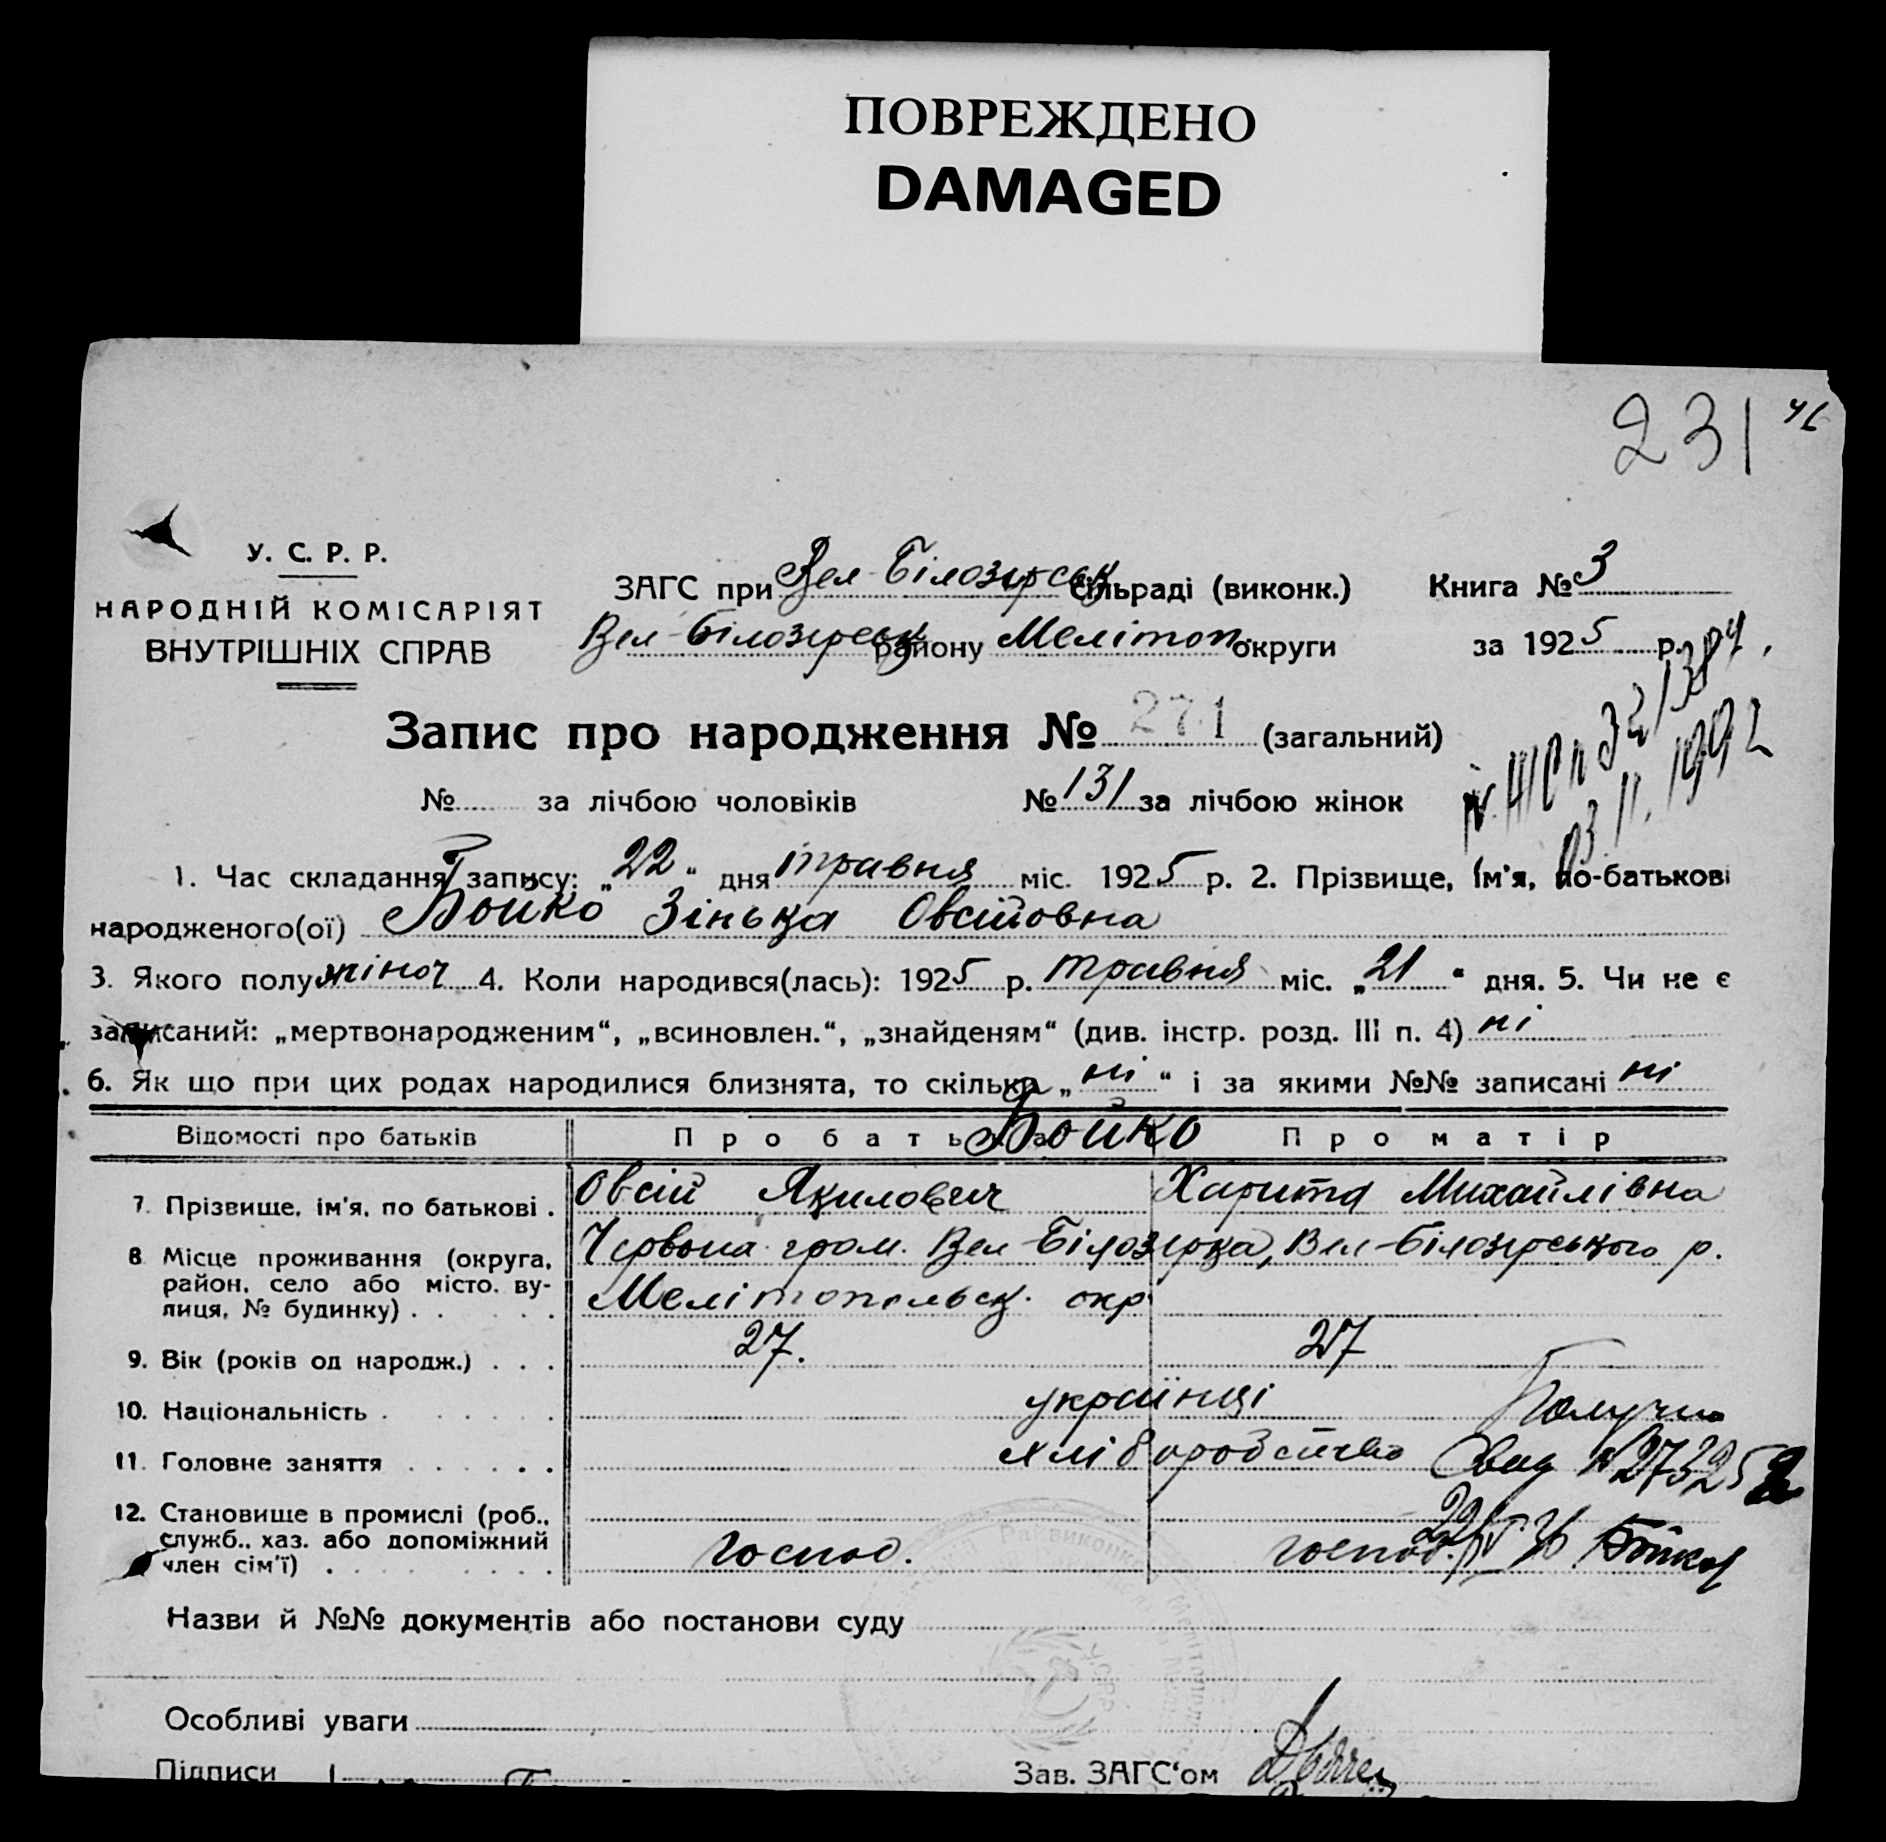 ПОВРЕЖДЕНО
DAMAGED
231 46
У. С. Р. Р.
НАРОДНІЙ КОМІСАРІЯТ
ВНУТРІШНІХ СПРАВ
ЗАГС при Вел-Білозирськ сільраді (виконк.) Книга № 3
Вел-Білозирськ району Мелітоп. округи за 1925 р.
Запис про народження № 271 (загальний)
03 11. 1992
№ за лічбою чоловіків № 131 за лічбою жінок
1. Час складання запису: „22“ дня травня міс. 1925 р. 2. Прізвище, ім'я, по-батькові
народженого(ої) Бойко Зінька Овсійовна
3. Якого полу жіноч 4. Коли народився(лась): 1925 р. травня міс. „21“ дня. 5. Чи не є
записаний: „мертвонародженим“, „всиновлен.“, „знайденям“ (див. інстр. розд. III п. 4) ні
6. Як що при цих родах народилися близнята, то скілька „ні“ і за якими №№ записані ні
Відомості про батьків Про батька Про матір
Бойко
7. Прізвище, ім'я, по батькові . Овсій Якилович Харитя Михайлівна
8 Місце проживання (округа, Червона гром. Вел-Білозирка, Вел-Білозирського р.
район, село або місто, ву-
лиця, № будинку) . . . . . Мелітопільськ. окр
9. Вік (років од народж.) . . . 27. 27
10. Національність . . . . . . українці Получила
11. Головне заняття . . . . . . хліборобство Свид № 273252
12. Становище в промислі (роб.,
служб., хаз. або допоміжний господ. господ. Бойко
член сім'ї) . . . . . . . .
Назви й №№ документів або постанови суду
Особливі уваги
Підписи Зав. ЗАГС'ом